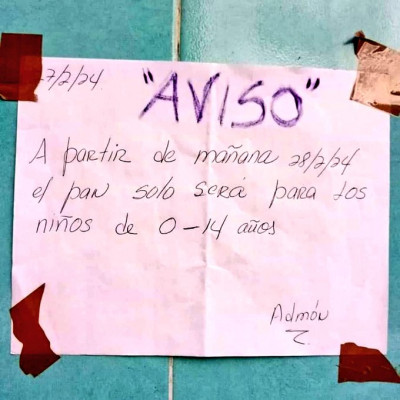 27/2/24
"AVISO"
A partir de mañana 28/2/24
el pan solo será para los
niños de 0-14 años
Admón